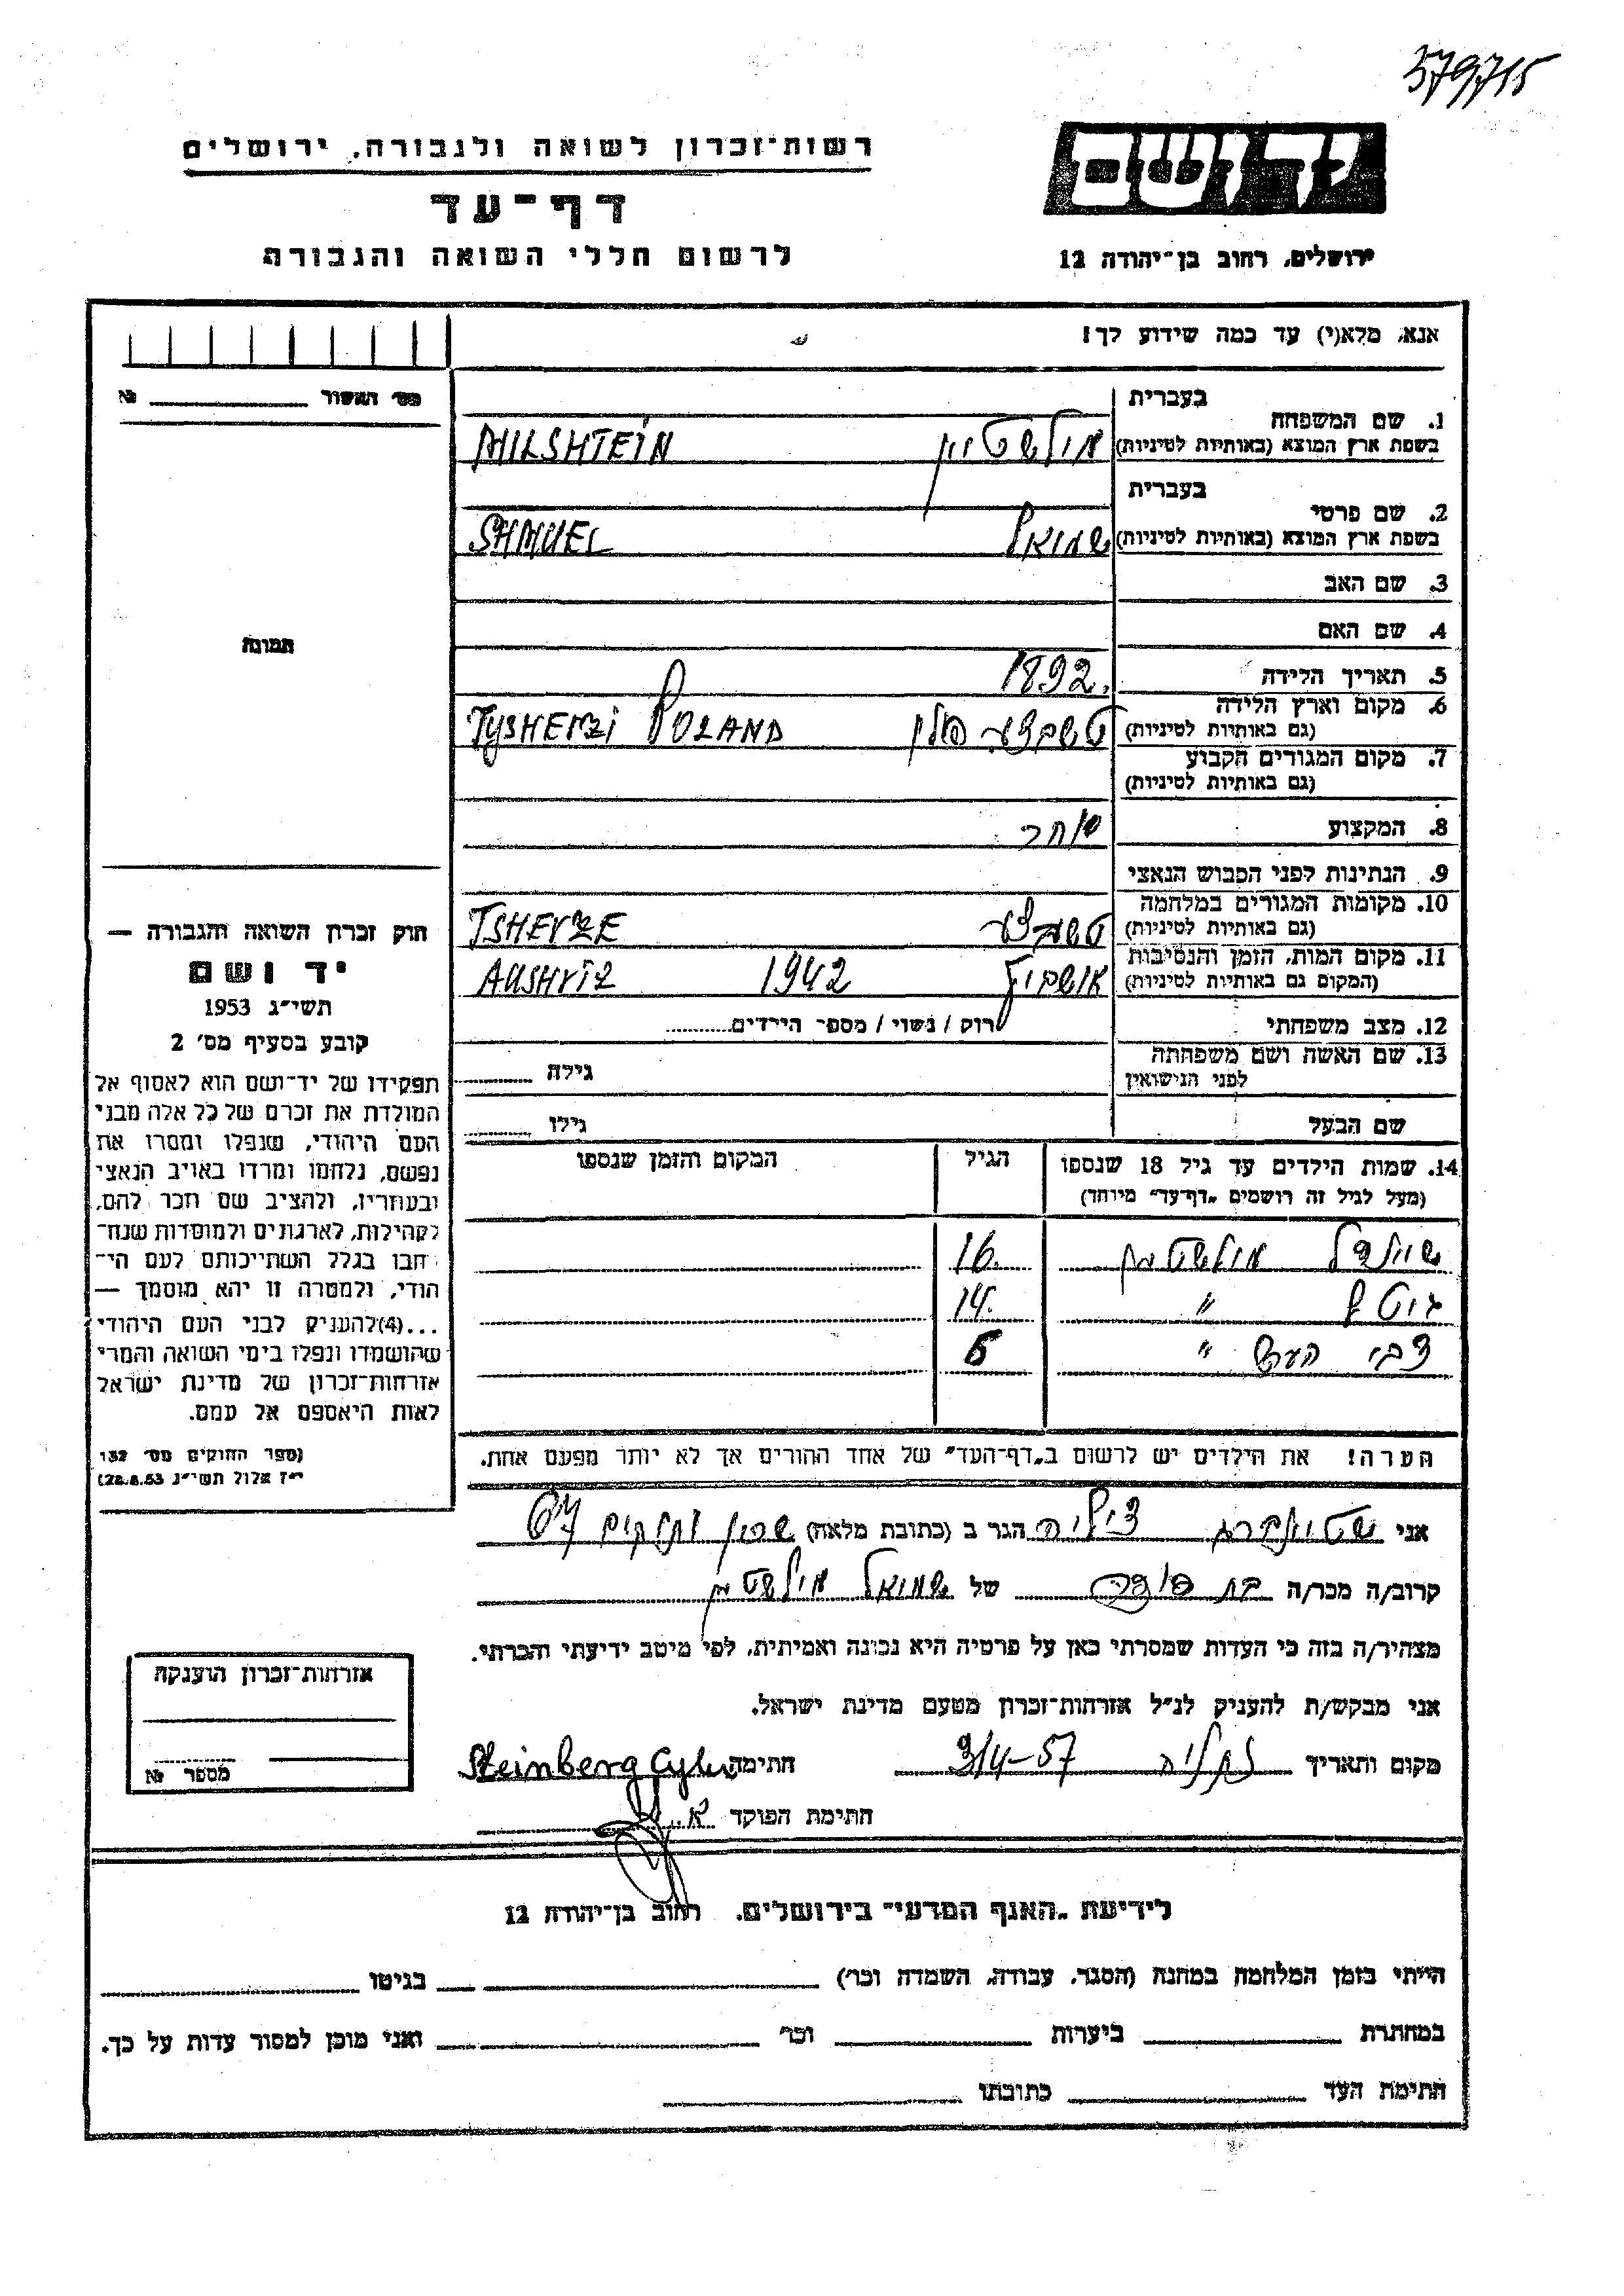 579715
יד ושם
ירושלים, רחוב בן-יהודה 12
רשות-זכרון לשואה ולגבורה, ירושלים
דף-עד
לרשום חללי השואה והגבורה
אנא, מלא(י) עד כמה שידוע לך!
מס׳ האשור №
תמונה
בעברית
1. שם המשפחה
בשפת ארץ המוצא (באותיות לטיניות)
מילשטיין MILSHTEIN
בעברית
2. שם פרטי
בשפת ארץ המוצא (באותיות לטיניות)
שמואל SHMUEL
3. שם האב
4. שם האם
5. תאריך הלידה 1892.
6. מקום וארץ הלידה
(גם באותיות לטיניות)
פולין POLAND
7. מקום המגורים הקבוע
(גם באותיות לטיניות)
8. המקצוע סוחר
9. הנתינות לפני הכבוש הנאצי
10. מקומות המגורים במלחמה
(גם באותיות לטיניות)
11. מקום המות, הזמן והנסיבות
(המקום גם באותיות לטיניות)
אושביץ 1942 AUSHVIZ
12. מצב משפחתי רוק / נשוי / מספר הילדים
13. שם האשה ושם משפחתה
לפני הנישואין
גילה
שם הבעל גילו
14. שמות הילדים עד גיל 18 שנספו
(מעל לגיל זה רושמים „דף-עד״ מיוחד)
הגיל
המקום והזמן שנספו
מילשטיין 16.
גיטל ״ 14.
צבי הערש ״ 6
הערה! את הילדים יש לרשום ב„דף-העד״ של אחד ההורים אך לא יותר מפעם אחת.
חוק זכרון השואה והגבורה —
יד ושם
תשי״ג 1953
קובע בסעיף מס׳ 2
תפקידו של יד-ושם הוא לאסוף אל
המולדת את זכרם של כל אלה מבני
העם היהודי, שנפלו ומסרו את
נפשם, נלחמו ומרדו באויב הנאצי
ובעוזריו, ולהציב שם וזכר להם,
לקהילות, לארגונים ולמוסדות שנח-
רבו בגלל השתייכותם לעם הי-
הודי, ולמטרה זו יהא מוסמך —
...(4)להעניק לבני העם היהודי
שהושמדו ונפלו בימי השואה והמרי
אזרחות-זכרון של מדינת ישראל
לאות היאספם אל עמם.
(ספר החוקים מס׳ 132
י״ז אלול תשי״ג 28.8.53)
אני שטינברג צילה הגר ב (כתובת מלאה) שכון ותיקים 67
קרוב/ה מכר/ה בת דודה של שמואל מילשטיין
מצהיר/ה בזה כי העדות שמסרתי כאן על פרטיה היא נכונה ואמיתית, לפי מיטב ידיעתי והכרתי.
אני מבקש/ת להעניק לנ״ל אזרחות-זכרון מטעם מדינת ישראל.
מקום ותאריך נתניה 3/4-57 חתימה Steinberg Cyla
חתימת הפוקד
אזרחות-זכרון הוענקה
מספר №
לידיעת „האגף המדעי״ בירושלים, רחוב בן-יהודה 12
הייתי בזמן המלחמה במחנה (הסגר, עבודה, השמדה וכר׳) בגיטו
במחתרת ביערות וכר׳ ואני מוכן למסור עדות על כך.
חתימת העד כתובתו